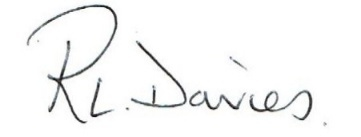 R.L. Davies.